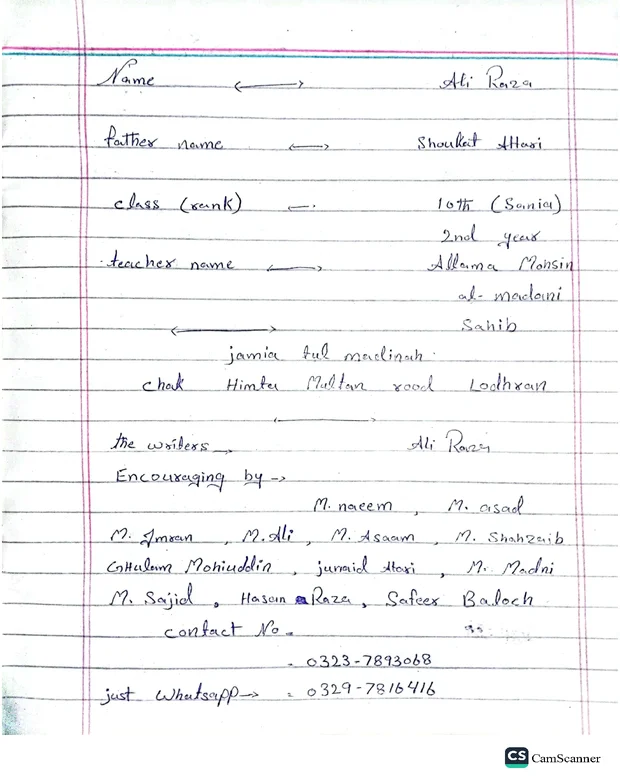 Name ⟷ Ali Raza
father name ⟷ Shoukat Attari
class (rank) ← 10th (Sania)
2nd year
teacher name ⟷ Allama Mohsin
al-madani
Sahib
jamia tul madinah.
chak Himta Multan road Lodhran
the writers → Ali Raza
Encouraging by ->
M. naeem , M. asad
M. Imran , M. Ali , M. Asaam , M. Shahzaib
GHulam Mohiuddin , junaid Attari , M. Madni
M. Sajid , Hasan Raza , Safeer Baloch
contact No =
= 0323-7893068
just Whatsapp → = 0329-7816416
CS CamScanner